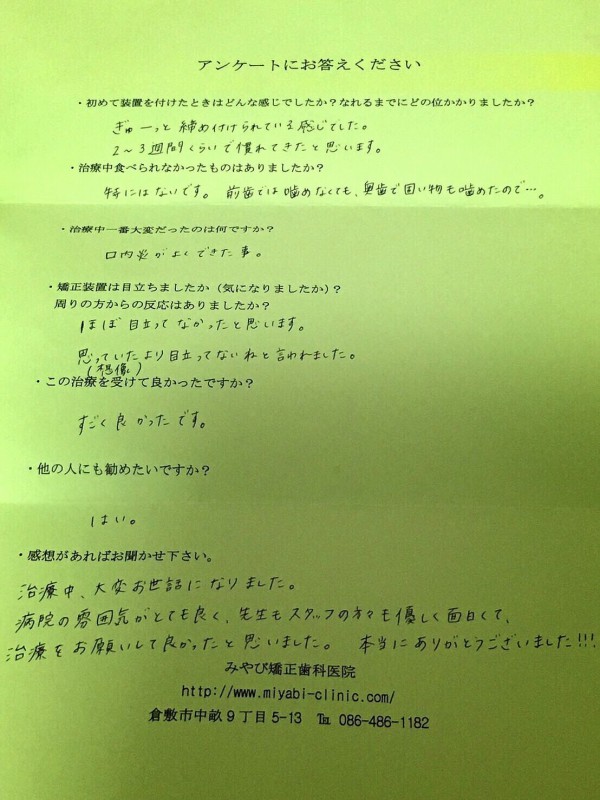 アンケートにお答えください
・初めて装置を付けたときはどんな感じでしたか？なれるまでにどの位かかりましたか？
ぎゅーっと締め付けられている感じでした。
2～3週間くらいで慣れてきたと思います。
・治療中食べられなかったものはありましたか？
特にはないです。 前歯では噛めなくても、奥歯で固い物も噛めたので…。
・治療中一番大変だったのは何ですか？
口内炎がよくできた事。
・矯正装置は目立ちましたか（気になりましたか）？
周りの方からの反応はありましたか？
ほぼ目立ってなかったと思います。
思っていたより目立ってないねと言われました。
(想像)
・この治療を受けて良かったですか？
すごく良かったです。
・他の人にも勧めたいですか？
はい。
・感想があればお聞かせ下さい。
治療中、大変お世話になりました。
病院の雰囲気がとても良く、先生もスタッフの方々も優しく面白くて、
治療をお願いして良かったと思いました。 本当にありがとうございました!!!
みやび矯正歯科医院
http://www.miyabi-clinic.com/
倉敷市中畝９丁目5-13 ℡ 086-486-1182